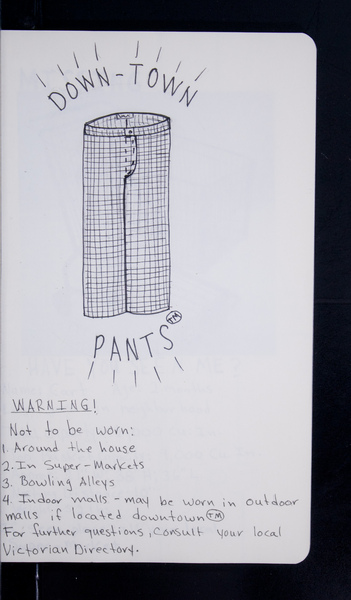 DOWN-TOWN
PANTS TM
WARNING!
Not to be worn:
1. Around the house
2. In Super-Markets
3. Bowling Alleys
4. Indoor malls - may be worn in outdoor
malls if located downtown TM
For further questions, consult your local
Victorian Directory.